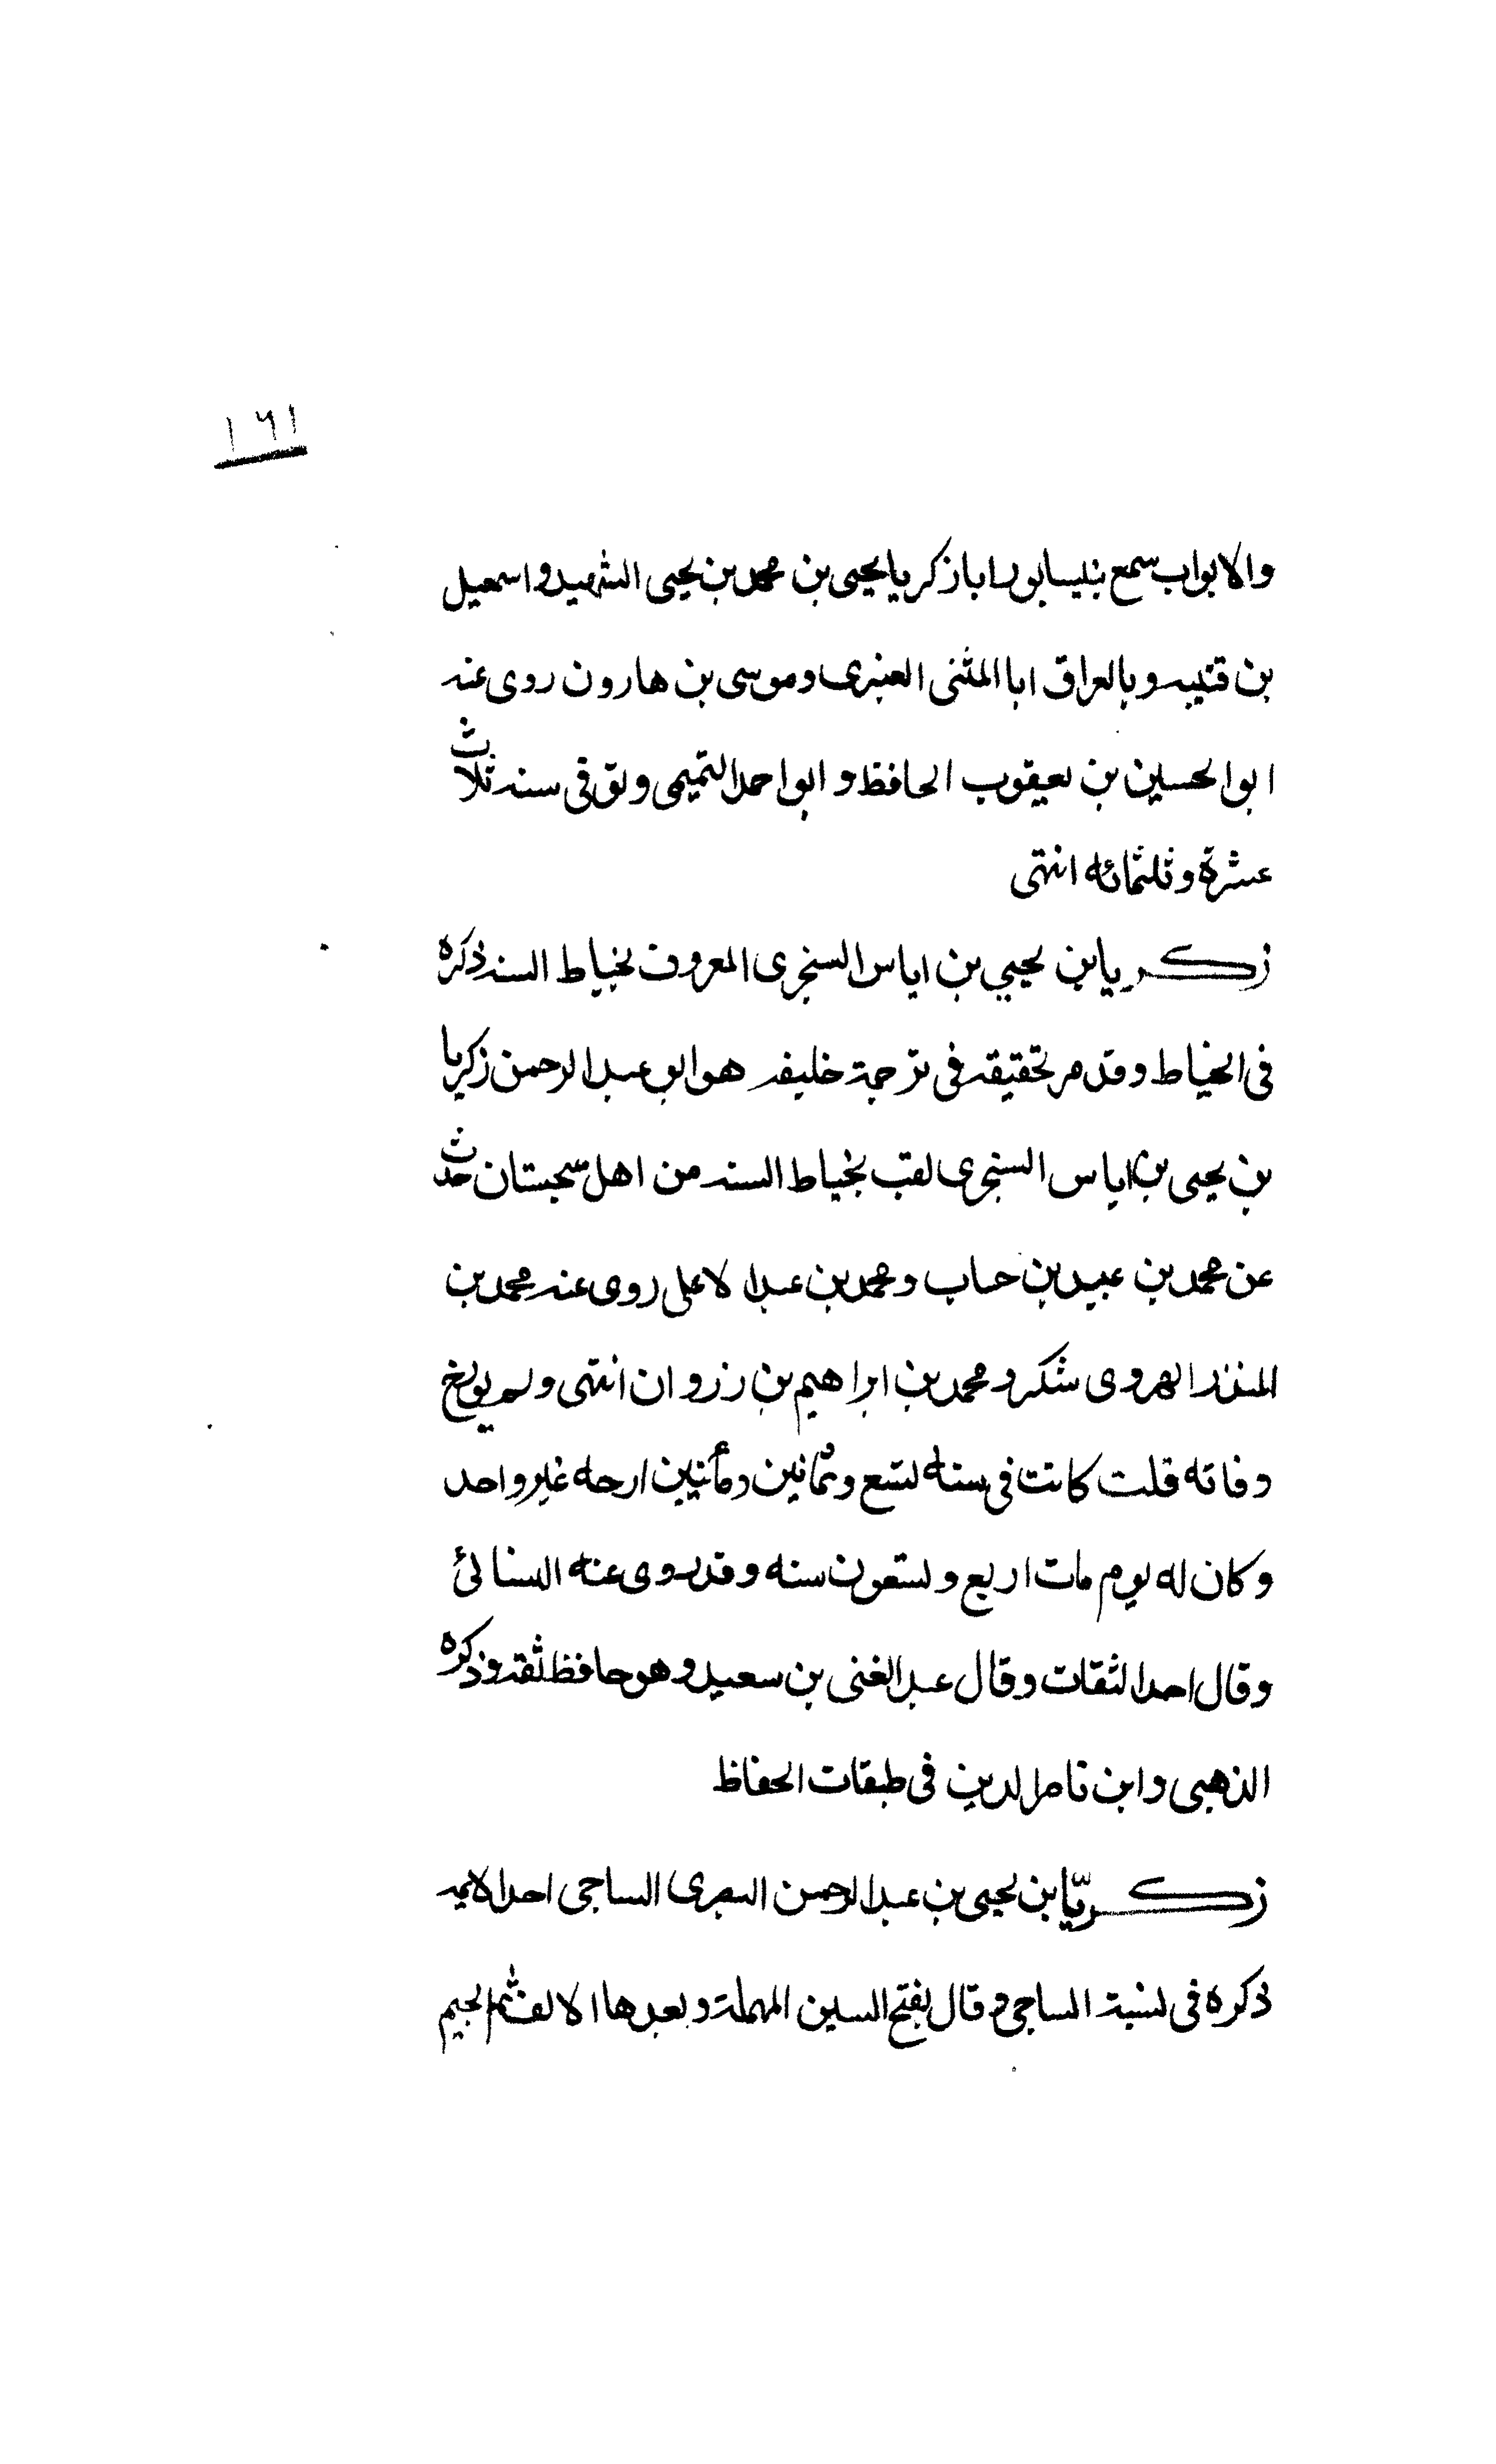 ١٦١
والابواب سمع بنيسابور ابا زكريا يحيى بن محمد بن يحيى الشهيد و اسمعيل
بن قتيبه و بالعراق ابا المثنى العنبرى و موسى بن هارون روى عنه
ابو الحسين بن يعقوب الحافظ و ابو احمد التميمى و توفى سنه ثلاث
عشرة و ثلثمائه انتهى
زكريا بن يحيى بن اياس السنجرى المعروف بخياط السنه ذكره
فى الخياط و قد مر تحقيقه فى ترجمة خليفه هو ابو عبد الرحمن زكريا
بن يحيى بن اياس السنجرى لقب بخياط السنه من اهل سجستان حدث
عن محمد بن عبيد بن حساب و محمد بن عبد الاعلى روى عنه محمد بن
المنذر الهروى شكر و محمد بن ابراهيم بن زروان انتهى و لم يورخ
وفاته قلت كانت فى سنه تسع و ثمانين و مأتين ارخه غير واحد
و كان له يوم مات اربع و تسعون سنه و قد روى عنه النسائى
و قال احد الثقات و قال عبد الغنى بن سعيد و هو حافظ ثقه و ذكره
الذهبى و ابن ناصر الدين فى طبقات الحفاظ
زكريّا بن يحيى بن عبد الرحمن البصرى الساجى احد الايمه
ذكره فى نسبة الساجى و قال بفتح السين المهملة و بعدها الالف ثم الجيم